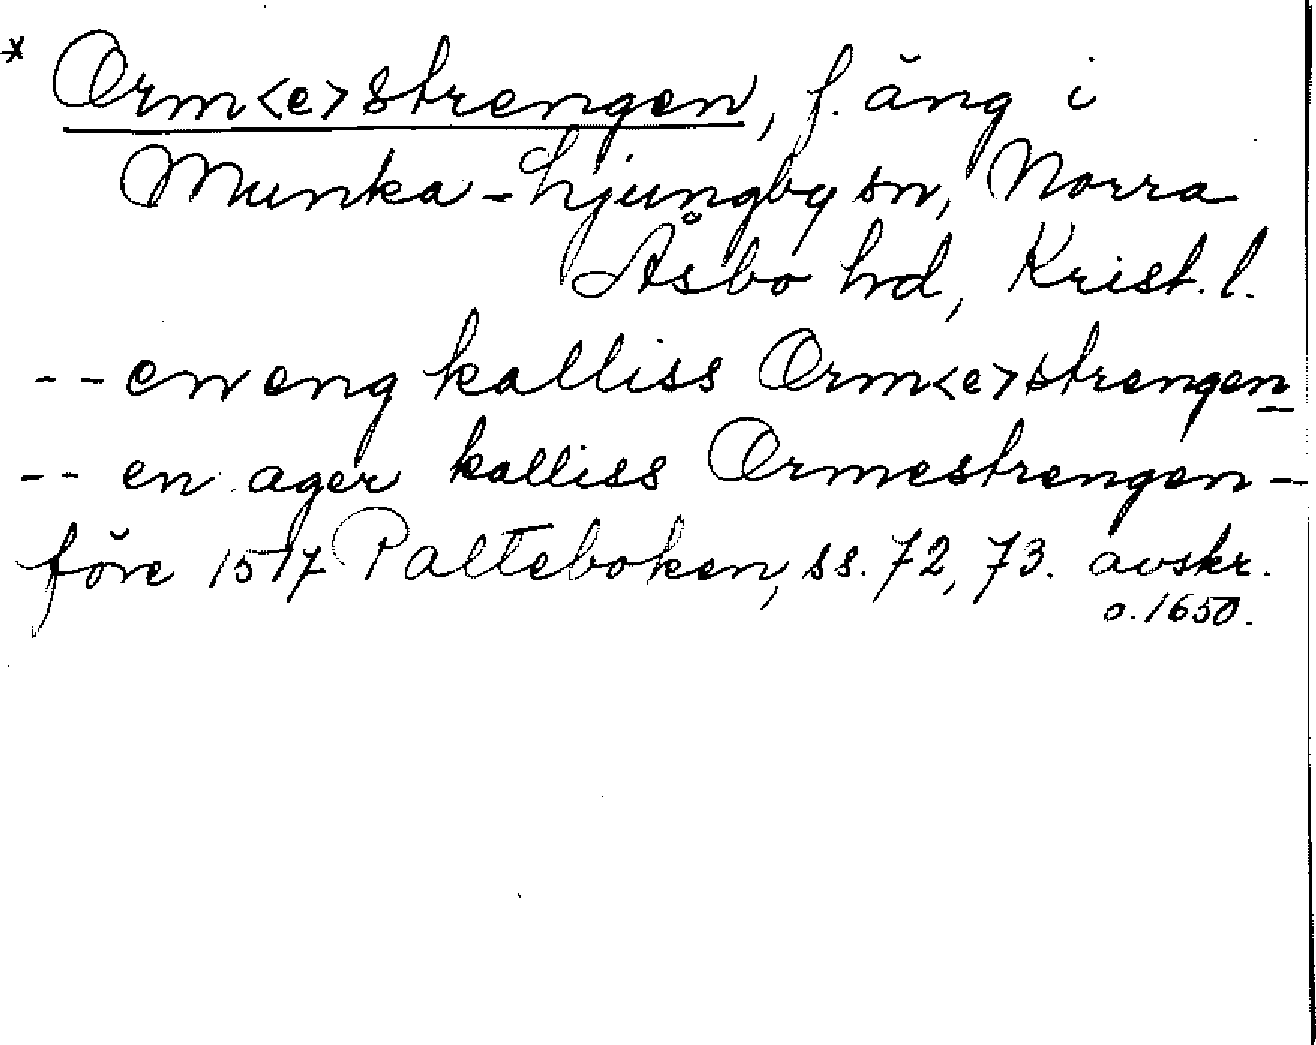 * Orm<e>strengen, f. äng i
Munka-Ljungby sn, Norra
Åsbo hd, Krist. l.
-- en eng kalliss Orm<e>strengen
-- en ager kalliss Ormestrengen -
före 1517 Palteboken, ss. 72, 73. avskr.
o. 1650.